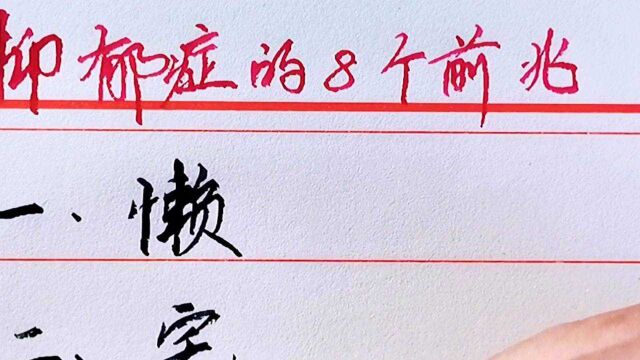 抑郁症的8个前兆
一、懒
二、